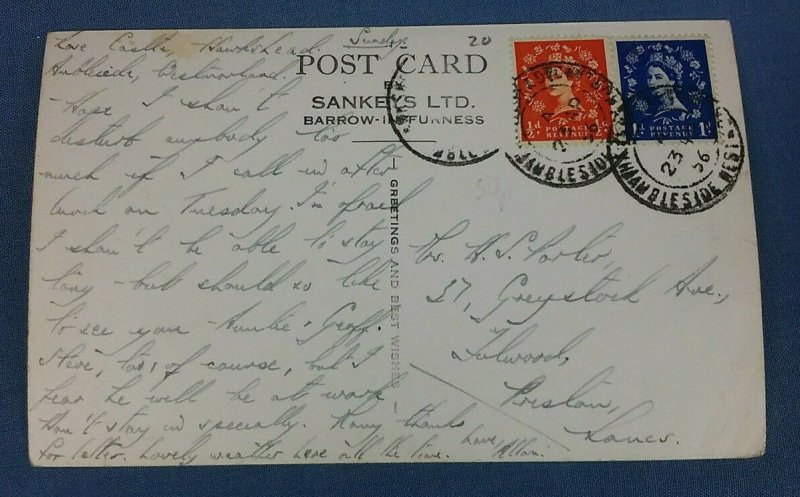 Castle, Hawkshead. Sunday
Ambleside, Westmorland
20
Hope I shan't
disturb anybody too
much if I call in after
lunch on Tuesday. I'm afraid
I shan't be able to stay
long - but should so like
to see you - Auntie & Geoff.
Steve, too, of course, but I
fear he will be at work
Don't stay in specially. Many thanks
for letter. Lovely weather here all the time. Love,
POST CARD
SANKEY'S LTD.
BARROW-IN-FURNESS
GREETINGS AND BEST WISHES
½d POSTAGE REVENUE
1d POSTAGE REVENUE 1d
AMBLESIDE
23 56
AMBLESIDE WEST
Mrs. H. S. Porter,
37, Greystock Ave.,
Fulwood,
Preston,
Lancs.